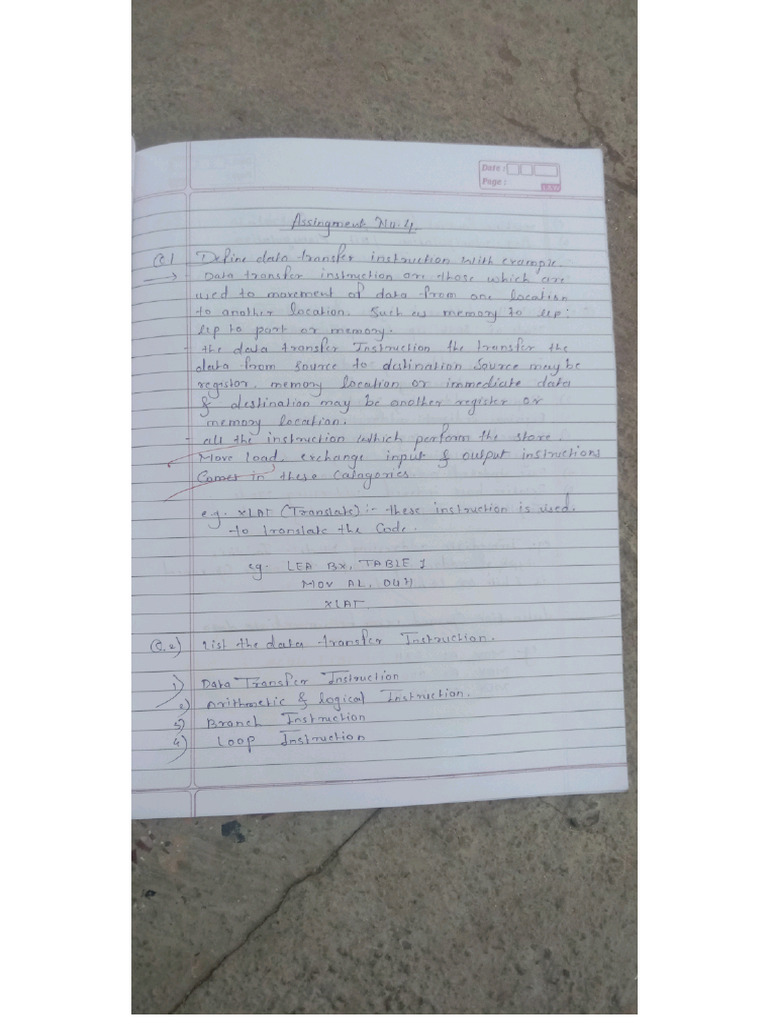 Date :
Page :
Assingment No. 4.
Q.1 Define data transfer instruction with example.
→ - Data transfer instruction are those which are
used to movement of data from one location
to another location. Such as memory to up:
up to port or memory.
- the data transfer Instruction the transfer the
data from source to destination source may be
registor, memory location or immediate data
& destination may be another register or
memory location.
- all the instruction which perform the store.
Move load, exchange input & output instructions
Comes in these catagories
e.g. XLAT (Translate) :- these instruction is used
to translate the Code.
eg. LEA BX, TABLE 1
MOV AL, 04H
XLAT.
Q.2) List the data transfer Instruction.
1) Data Transfer Instruction
2) Arithmetic & logical Instruction.
3) Branch Instruction
4) Loop Instruction